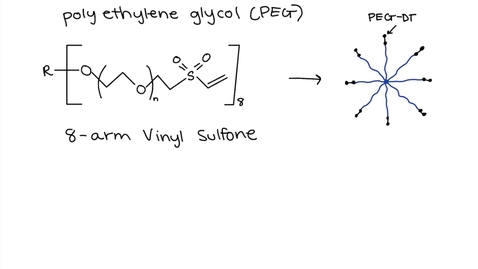 poly ethylene glycol (PEG)
PEG-DT
R
O
O
n
S
O
O
8
8-arm Vinyl Sulfone